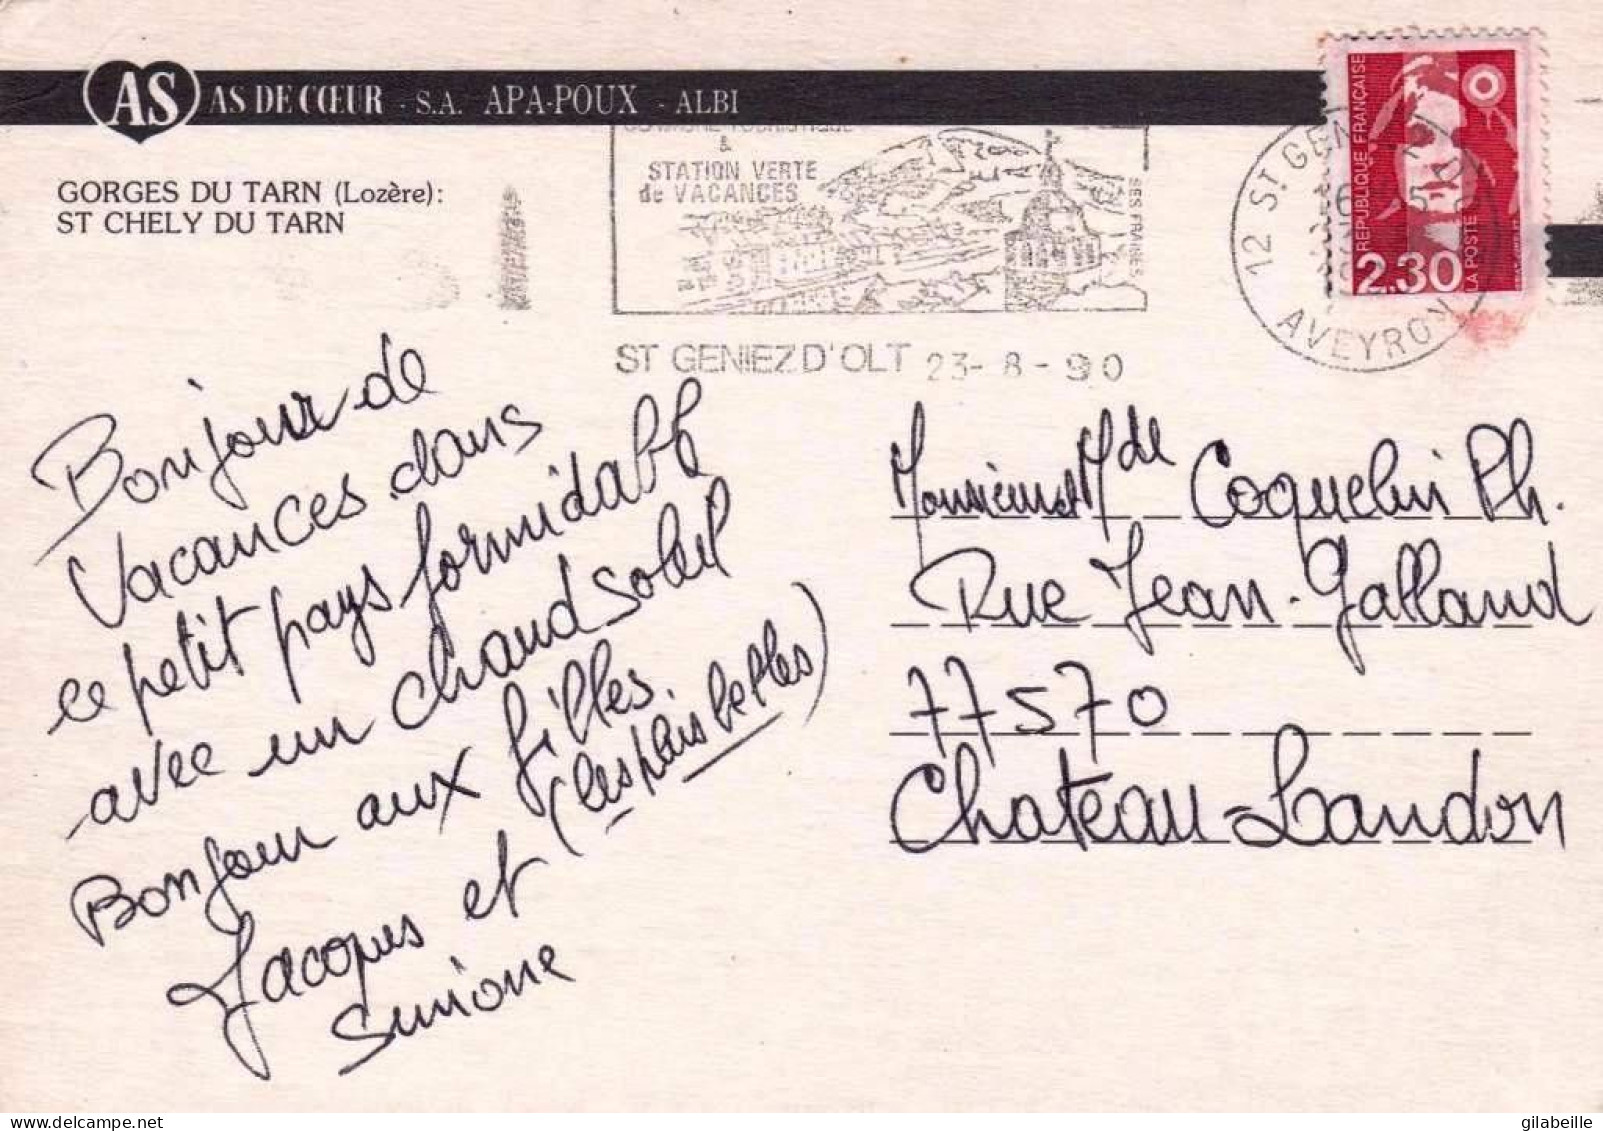 AS AS DE CŒUR - S.A. APA-POUX - ALBI
GORGES DU TARN (Lozère):
ST CHELY DU TARN
COMMUNE TOURISTIQUE
&
STATION VERTE
de VACANCES
SES FRAISES
ST GENIEZ D'OLT 23-8-90
12 ST GENIEZ D
AVEYRON
REPUBLIQUE FRANÇAISE
LA POSTE
2.30
Bonjour de
Vacances dans
ce petit pays formidable
avec un chaud soleil
Bonjour aux filles.
(les plus belles)
Jacques et
Simone
Monsieur et Mde Coquelin Ph.
Rue Jean-Galland
77570
Chateau-Landon
gilabeille